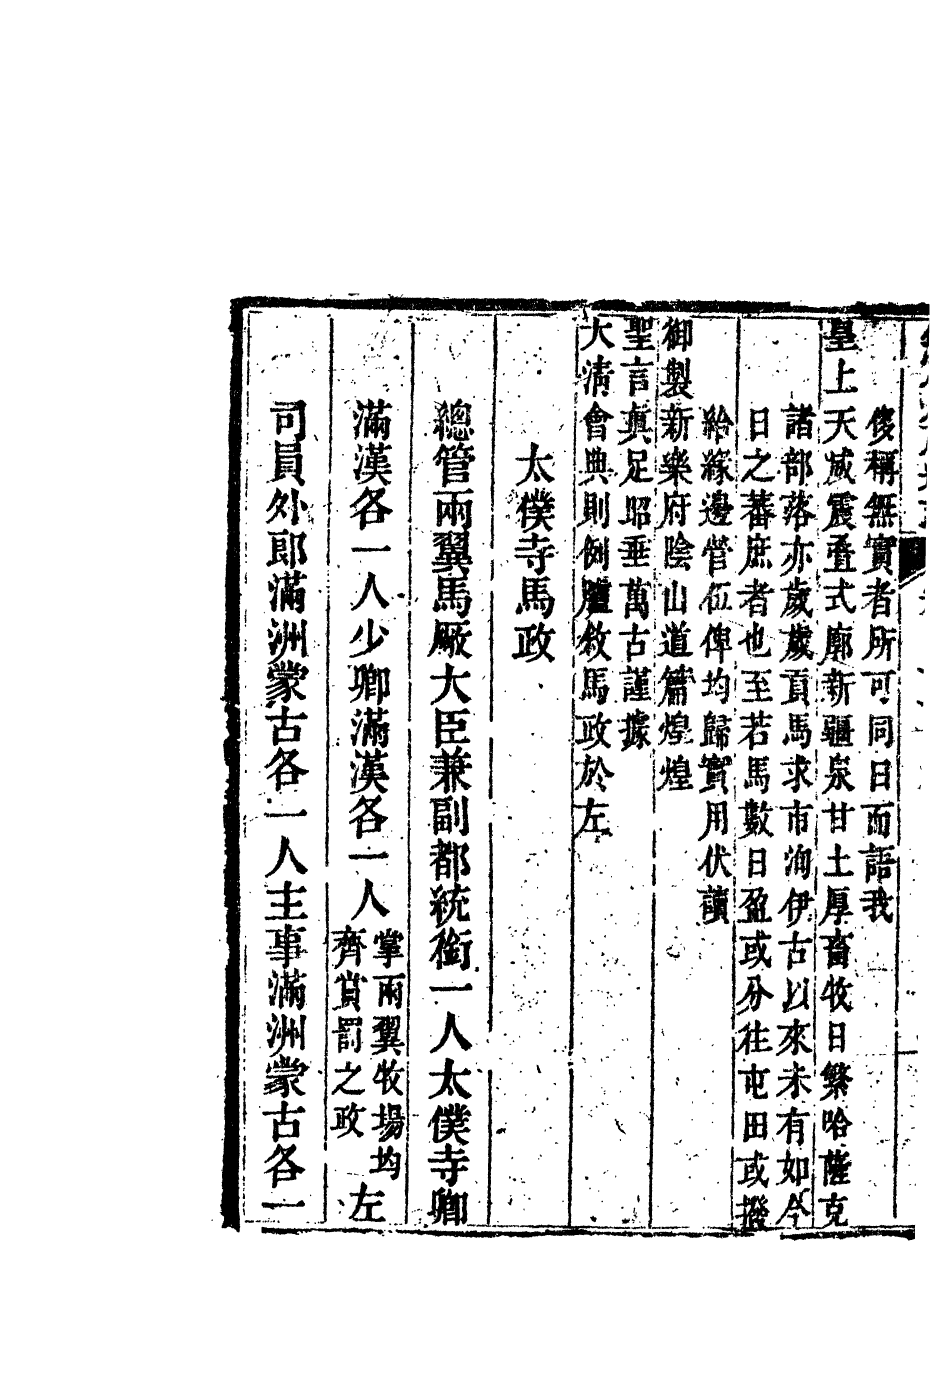 後稱無實者所可同日而語我
皇上天威震疊式廓新疆泉甘土厚畜牧日繁哈薩克
諸部落亦歲歲貢馬求市洵伊古以來未有如今
日之蕃庶者也至若馬數日盈或分往屯田或撥
給緣邊營伍俾均歸實用伏讀
御製新樂府陰山道篇煌煌
聖言真足昭垂萬古謹據
大清會典則例臚敘馬政於左
太僕寺馬政
總管兩翼馬厰大臣兼副都統銜一人太僕寺卿
滿漢各一人少卿滿漢各一人掌兩翼牧場均齊賞罰之政左
司員外郎滿洲蒙古各一人主事滿洲蒙古各一